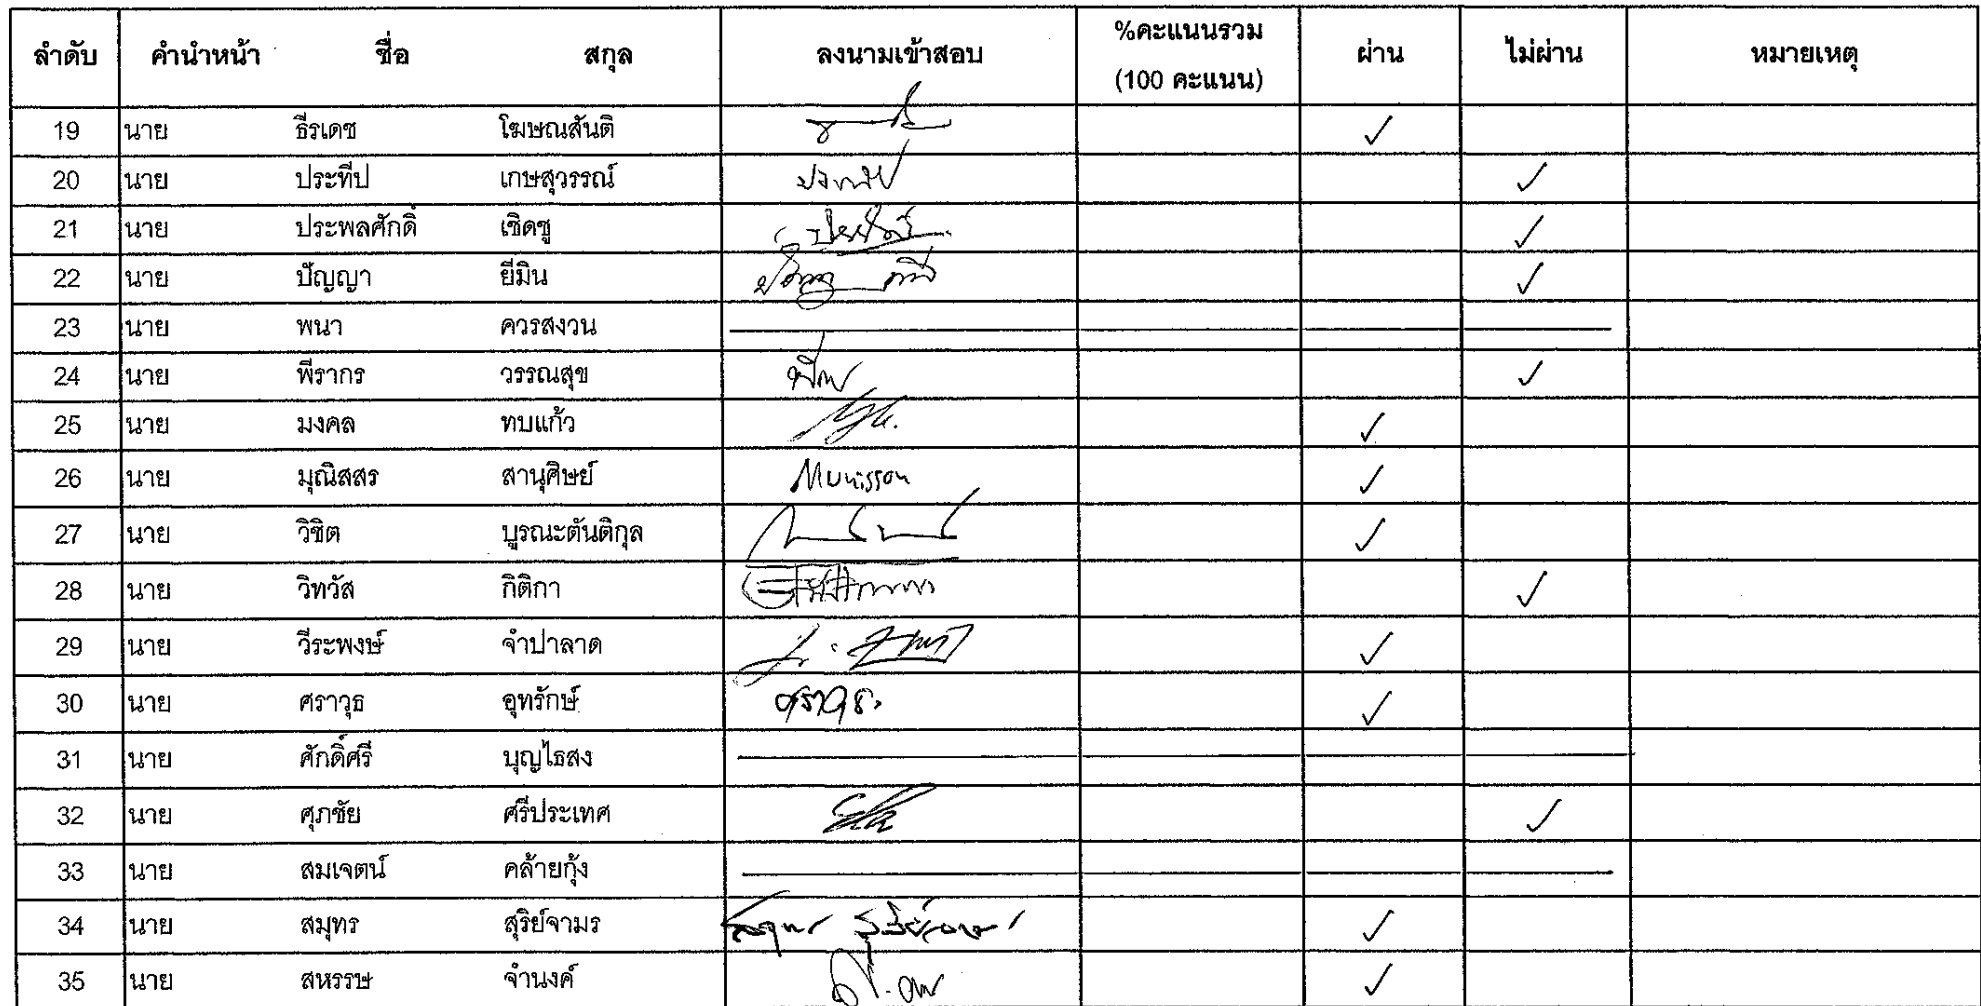 ลำดับ คำนำหน้า ชื่อ สกุล ลงนามเข้าสอบ %คะแนนรวม (100 คะแนน) ผ่าน ไม่ผ่าน หมายเหตุ
19 นาย ธีรเดช โฆษณสันติ ✓
20 นาย ประทีป เกษสุวรรณ์ ประทีป ✓
21 นาย ประพลศักดิ์ เชิดชู ✓
22 นาย ปัญญา ยีมิน ✓
23 นาย พนา ควรสงวน
24 นาย พีรากร วรรณสุข ✓
25 นาย มงคล ทบแก้ว ✓
26 นาย มุณิสสร สานุศิษย์ Munisson ✓
27 นาย วิชิต บูรณะตันติกุล ✓
28 นาย วิทวัส กิติกา ✓
29 นาย วีระพงษ์ จำปาลาด ✓
30 นาย ศราวุธ อุทรักษ์ ศราวุธ ✓
31 นาย ศักดิ์ศรี บุญไธสง
32 นาย ศุภชัย ศรีประเทศ ✓
33 นาย สมเจตน์ คล้ายกุ้ง
34 นาย สมุทร สุริย์จามร ✓
35 นาย สหรรษ จำนงค์ ✓